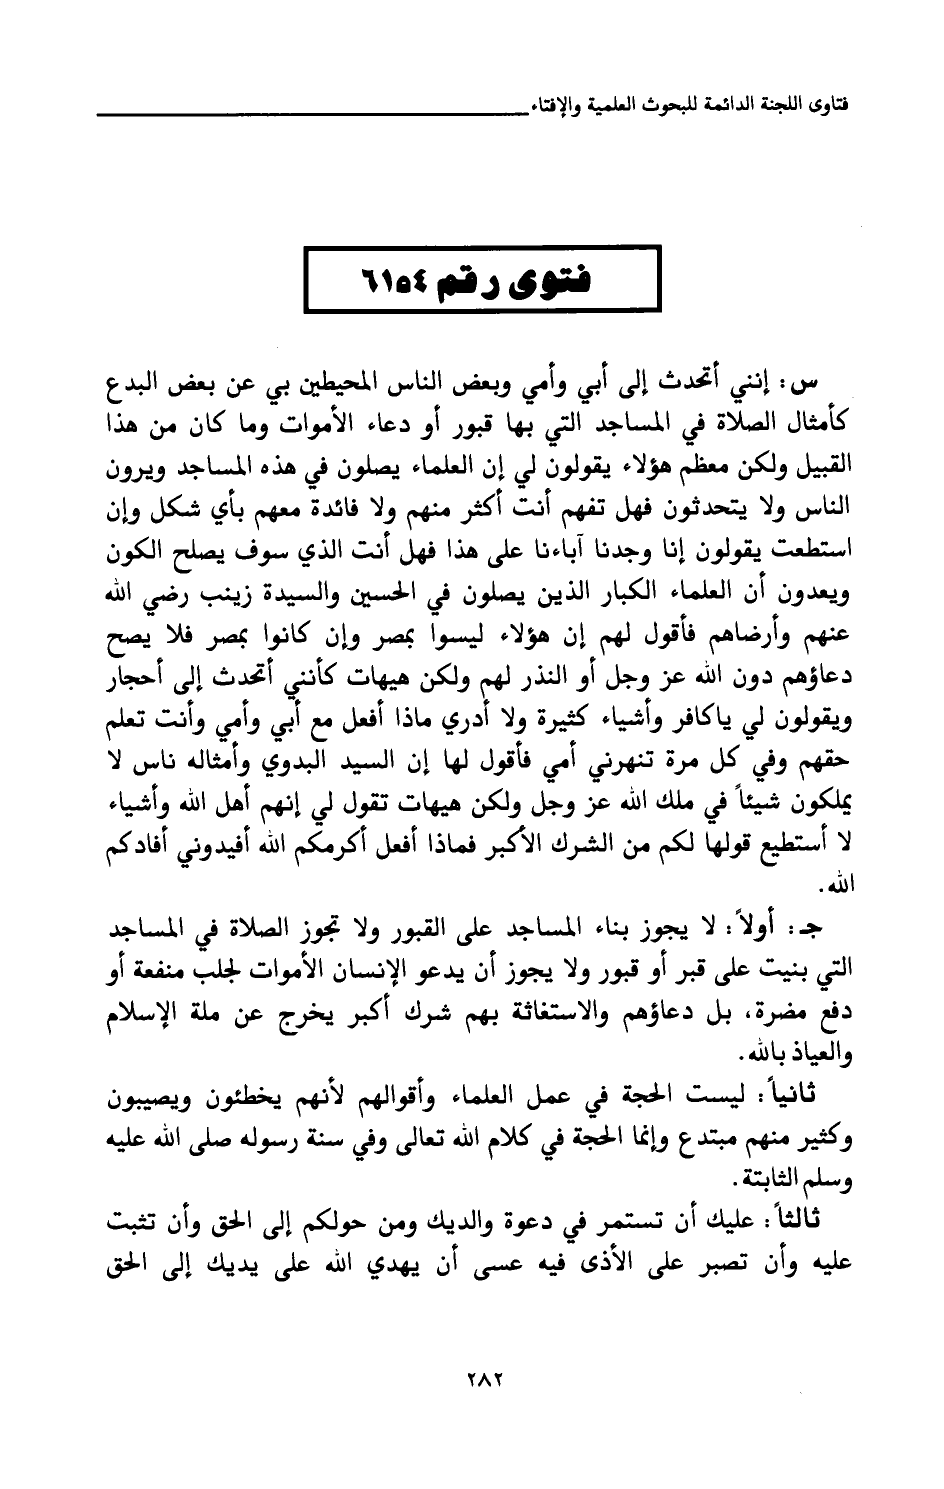 فتاوى اللجنة الدائمة للبحوث العلمية والإفتاء
فتوى رقم ٦١٥٤
س: إنني أتحدث إلى أبي وأمي وبعض الناس المحيطين بي عن بعض البدع
كأمثال الصلاة في المساجد التي بها قبور أو دعاء الأموات وما كان من هذا
القبيل ولكن معظم هؤلاء يقولون لي إن العلماء يصلون في هذه المساجد ويرون
الناس ولا يتحدثون فهل تفهم أنت أكثر منهم ولا فائدة معهم بأي شكل وإن
استطعت يقولون إنا وجدنا آباءنا على هذا فهل أنت الذي سوف يصلح الكون
ويعدون أن العلماء الكبار الذين يصلون في الحسين والسيدة زينب رضي الله
عنهم وأرضاهم فأقول لهم إن هؤلاء ليسوا بمصر وإن كانوا بمصر فلا يصح
دعاؤهم دون الله عز وجل أو النذر لهم ولكن هيهات كأنني أتحدث إلى أحجار
ويقولون لي ياكافر وأشياء كثيرة ولا أدري ماذا أفعل مع أبي وأمي وأنت تعلم
حقهم وفي كل مرة تنهرني أمي فأقول لها إن السيد البدوي وأمثاله ناس لا
يملكون شيئاً في ملك الله عز وجل ولكن هيهات تقول لي إنهم أهل الله وأشياء
لا أستطيع قولها لكم من الشرك الأكبر فماذا أفعل أكرمكم الله أفيدوني أفادكم
الله.
جـ: أولاً: لا يجوز بناء المساجد على القبور ولا تجوز الصلاة في المساجد
التي بنيت على قبر أو قبور ولا يجوز أن يدعو الإنسان الأموات لجلب منفعة أو
دفع مضرة، بل دعاؤهم والاستغاثة بهم شرك أكبر يخرج عن ملة الإسلام
والعياذ بالله.
ثانياً: ليست الحجة في عمل العلماء وأقوالهم لأنهم يخطئون ويصيبون
وكثير منهم مبتدع وإنما الحجة في كلام الله تعالى وفي سنة رسوله صلى الله عليه
وسلم الثابتة.
ثالثاً: عليك أن تستمر في دعوة والديك ومن حولكم إلى الحق وأن تثبت
عليه وأن تصبر على الأذى فيه عسى أن يهدي الله على يديك إلى الحق
٢٨٢